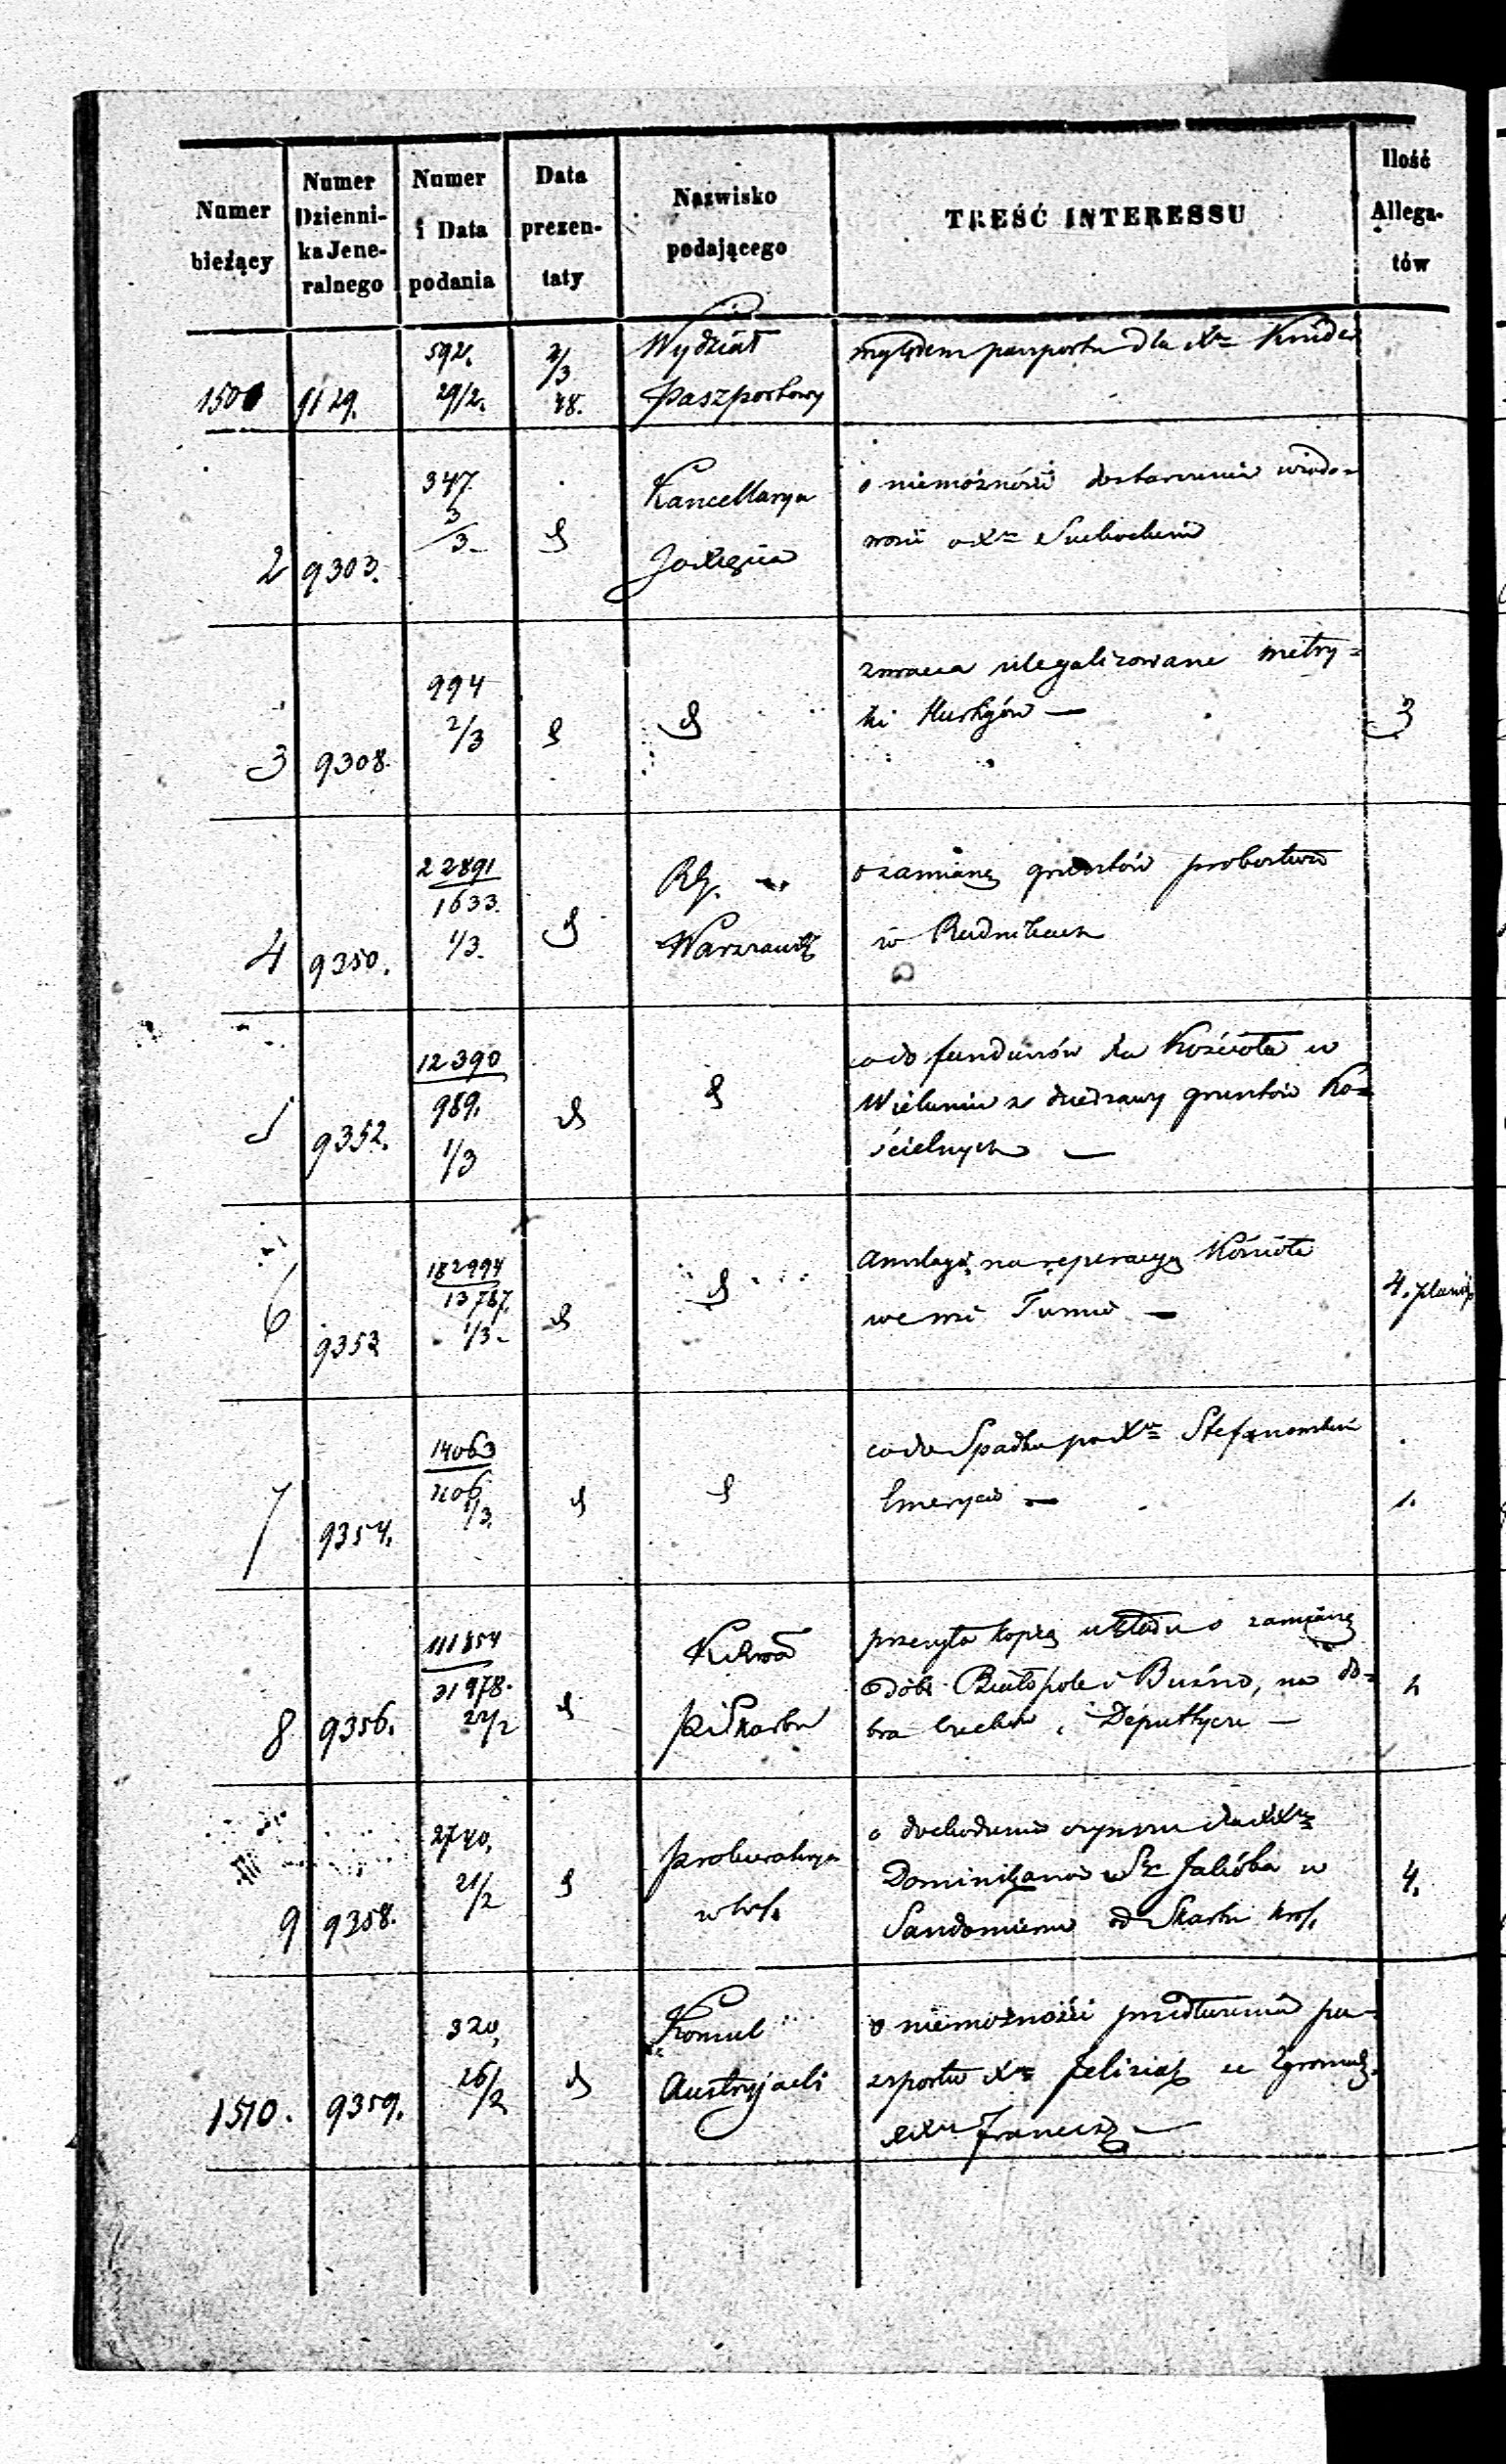 Numer
bieżący
Numer
Dzienni-
ka Jene-
ralnego
Numer
i Data
podania
Data
prezen-
taty
Nazwisko
podającego
TREŚĆ INTERESSU
Ilość
Allega-
tów
1501
9129.
592.
29/2.
2/3
48.
Wydział
Paszportowy
względem passportu dla Xa
2
9303.
347.
3/3.
Kancellarya
o niemożności dostarczenia wiado=
mości o Xu
3
9308.
994
2/3
zwraca zilegalizowane metry=
ki
3
4
9350.
22891
1633.
1/3.
RG.
Warszawsk
o zamianę gruntów probostwa
w Rudnikach
5
9352.
12390
989.
1/3
co do funduszów dla Kościoła w
Wieluniu z dzierżawy gruntów Ko=
ścielnych —
6
9353
182994
13787.
1/3.
na reperacyą Kościoła
we wsi Tumie —
4. plany
7
9354.
14063
1/3.
co do Spadku po Xu Stefanowskim
Emerycie —
1.
8
9356.
111854
31978.
22/2
PiSkarbu
przesyła kopią układu o zamianę
dóbr Białopole i Buśno, na do=
bra i Depułtycze —
9
9358.
2740.
21/2
Prokuratorya
w Król.
o dochodzenie czynszu dla XXy
Dominikanów Sgo Jakóba w
Sandomierzu od Skarbu Król.
4.
1510.
9359.
320,
26/2
Konsul
Austryjacki
o niemożności przedłużenia pa=
szportu Xa ze Zgromadz.
XXy Francisz. —